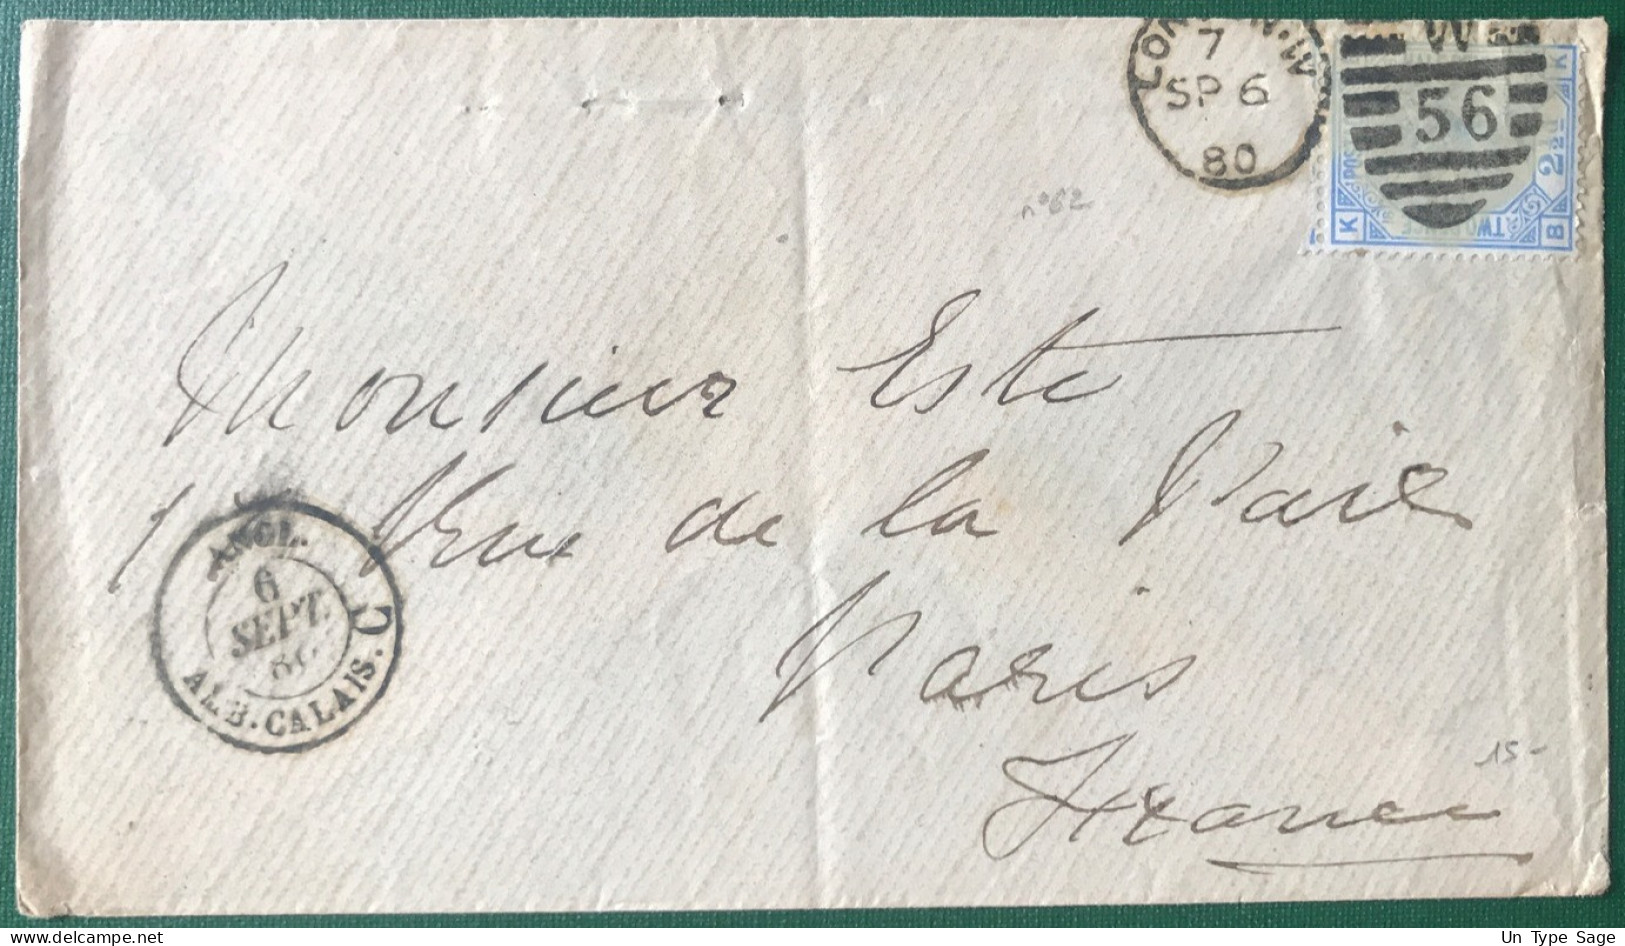 LONDON N.W
7
SP 6
80
W
56
K
2½D
POS
K
TWO
B
n°62
Monsieur Este
1 Rue de la Paix
Paris
France
ANGL.
6
SEPT.
80
AMB. CALAIS. C
15-
Un Type Sage